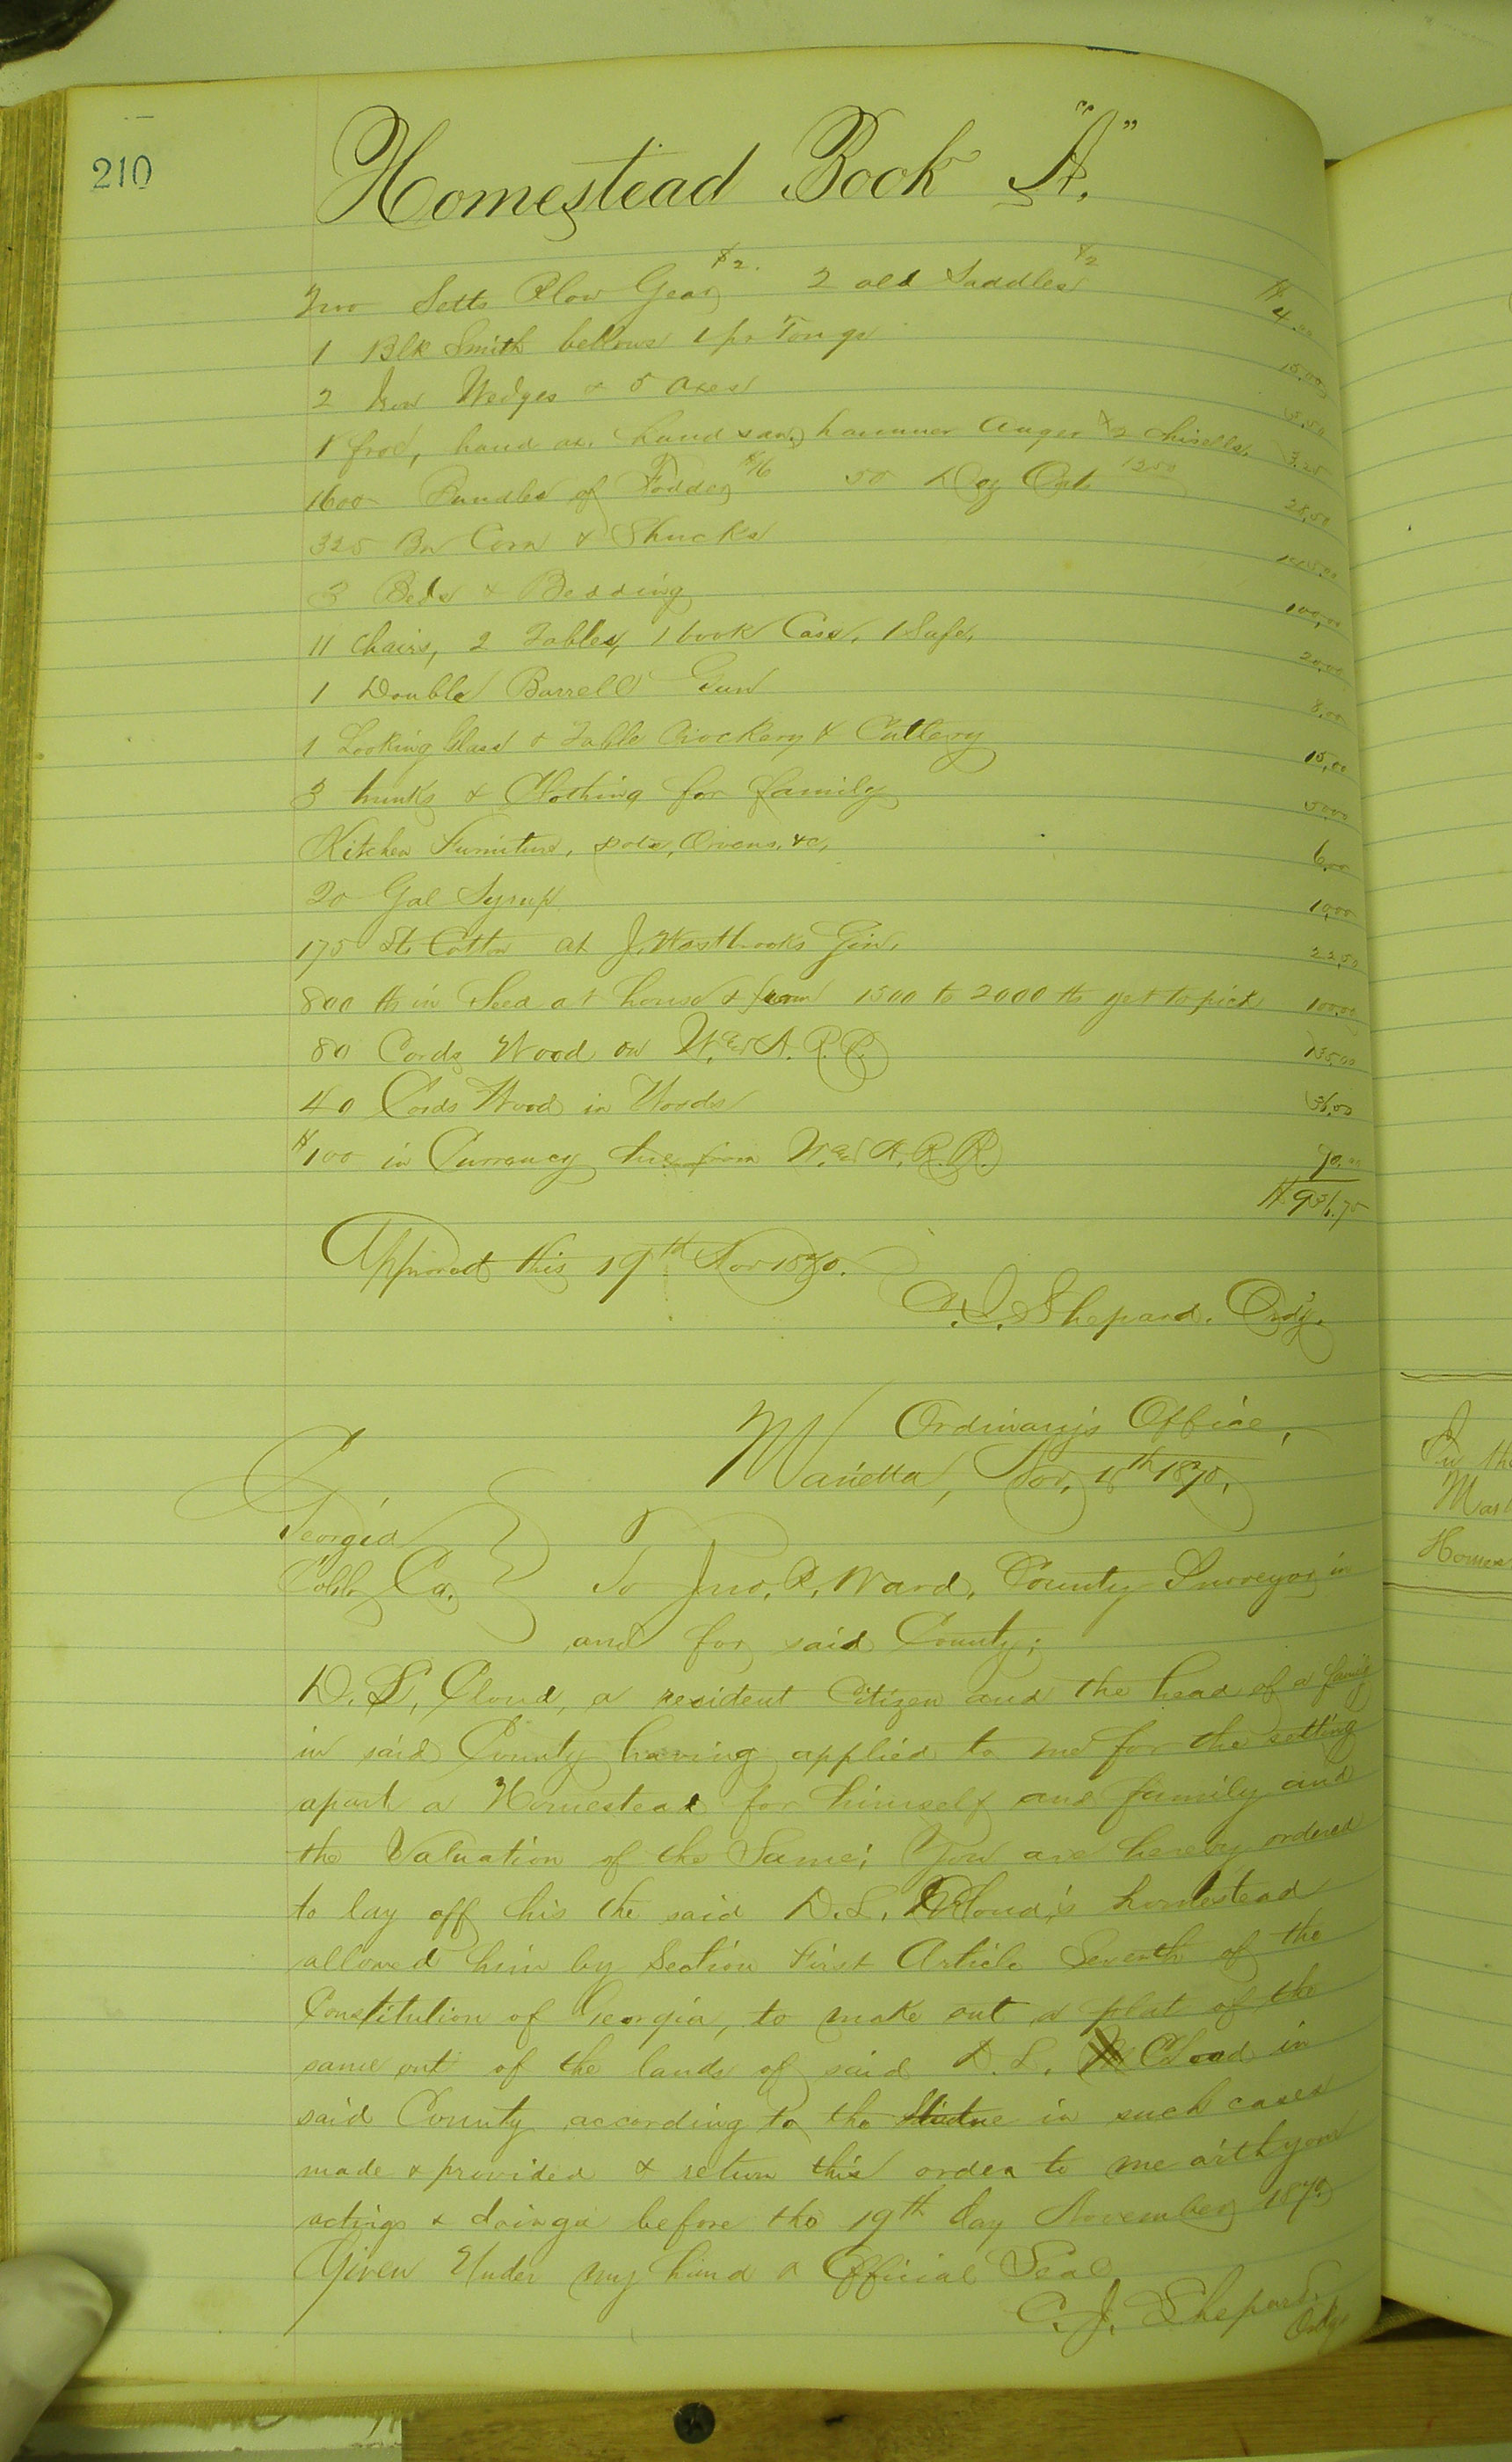 210
Homestead Book "A".
Two Setts Plow Gear $2. 2 old Saddles $2 $4.00
1 Blk Smith bellows 1 pr Tongs 15.00
2 Iron Wedges & 5 Axes 5.50
1 frod, hand ax, hand saw, hammer Auger & 2 chisells, 3.25
1600 Bundles of Fodder $16 50 Doz Oats 12.50 28.50
325 Bu Corn & Shucks
3 Beds & Bedding 100.00
11 Chairs, 2 Tables, 1 book Case, 1 Safe, 20.00
1 Double Barrell Gun 8.00
1 Looking Glass & Table Crockery & Cutlery 15.00
3 trunks & Clothing for family 50.00
Kitchen Furniture, pots, Ovens, &c, 6.00
20 Gal Syrup 10.00
175 lb Cotton at J. Westbrooks Gin, 22.50
800 lb in Seed at house & from 1500 to 2000 lb yet to pick 100.00
80 Cords Wood on W. & A. R. R. 135.00
40 Cords Wood in Woods 36.00
$100 in Currency due from W. & A. R. R. 70.00
$931.75
Approved this 19th Nov 1870.
C. J. Shepard. Ordy.
Ordinary's Office,
Marietta, Nov, 15th 1870,
Georgia
Cobb Co. To Jno. R. Ward, County Surveyor in
and for said County;
D. L. Cloud, a resident Citizen and the head of a family
in said County having applied to me for the setting
apart a Homestead for himself and family and
the Valuation of the Same; You are hereby ordered
to lay off his the said D. L. Cloud's homestead
allowed him by Section First Article Seventh of the
Constitution of Georgia, to make out a plat of the
same out of the lands of said D. L. Cloud in
said County according to the Statue in such cases
made & provided & return this order to me with your
actings & doings before the 19th day November 1870
Given Under my hand & Official Seal
C. J. Shepard.
Ordy
In the
Mar
Homes